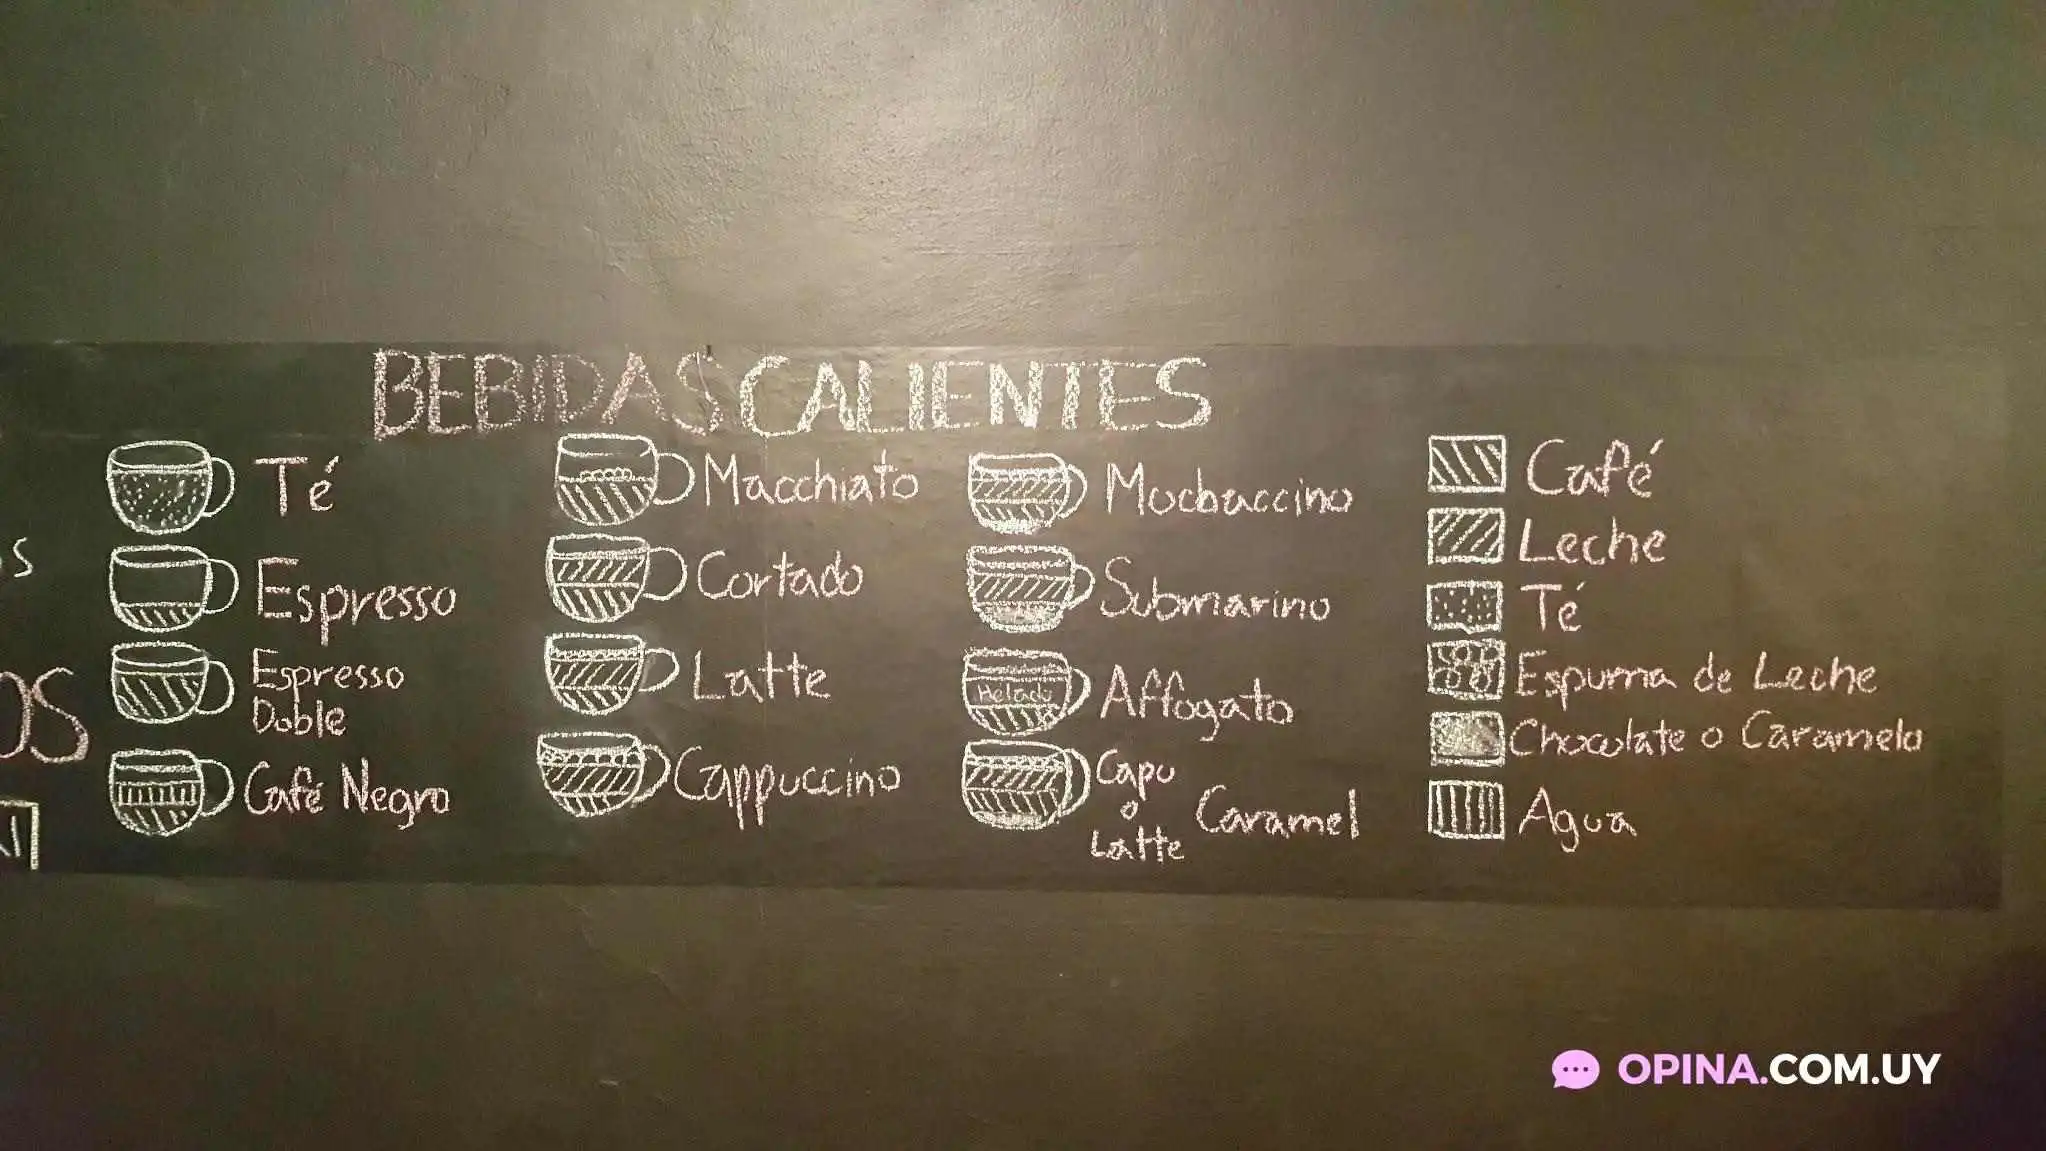 BEBIDAS CALIENTES
Té
Espresso
Espresso
Doble
Café Negro
Macchiato
Cortado
Latte
Cappuccino
Mocbaccino
Submarino
Helado
Affogato
Capu
o
Latte
Caramel
Café
Leche
Té
Espuma de Leche
Chocolate o Caramelo
Agua
os
OS
OPINA.COM.UY